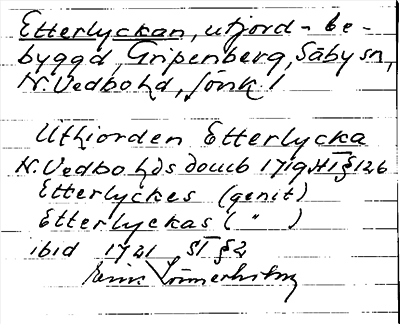 Etterlyckan, utjord - be-
byggd, Gripenberg, Säby sn,
N. Vedbo hd, Jönk. l
Uthiorden Etterlycka
N. Vedbo hds domb 1719 HT § 126
Etterlyckes (genit)
Etterlyckas ( " )
ibid 1721 ST § 2